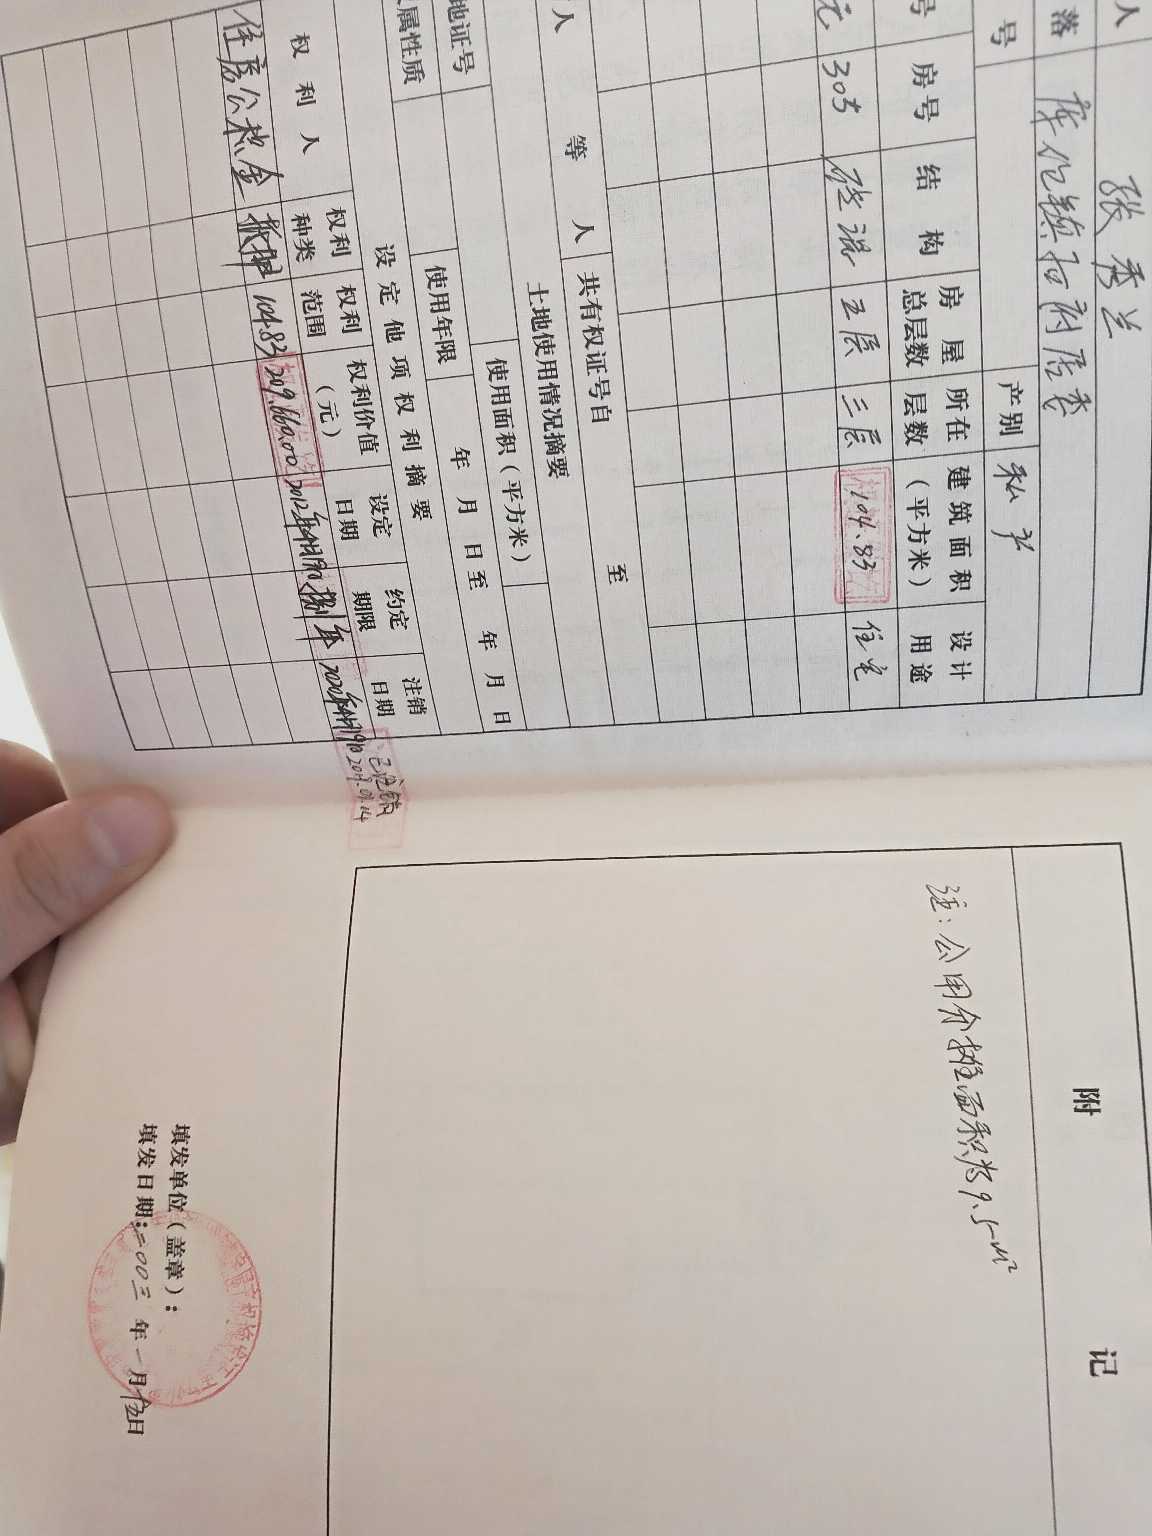 人 张秀兰
落 库伦镇 府居委
号 产别 私产
号 房号 结构 房屋总层数 所在层数 建筑面积（平方米） 设计用途
元 305 砖混 五层 三层 104.83 住宅
人 等 人 共有权证号自 至
土地使用情况摘要
地证号 使用面积（平方米）
属性质 使用年限 年 月 日至 年 月 日
设定他项权利摘要
权利人 权利种类 权利范围 权利价值（元） 设定日期 约定期限 注销日期
住房公积金 抵押 104.83 209.660.00 2012年4月 捌年 2020年4月19日
已注销
2019.01.14
附 记
注:公用分摊面积为9.5m²
填发单位（盖章）:
填发日期:二00三年一月十五日